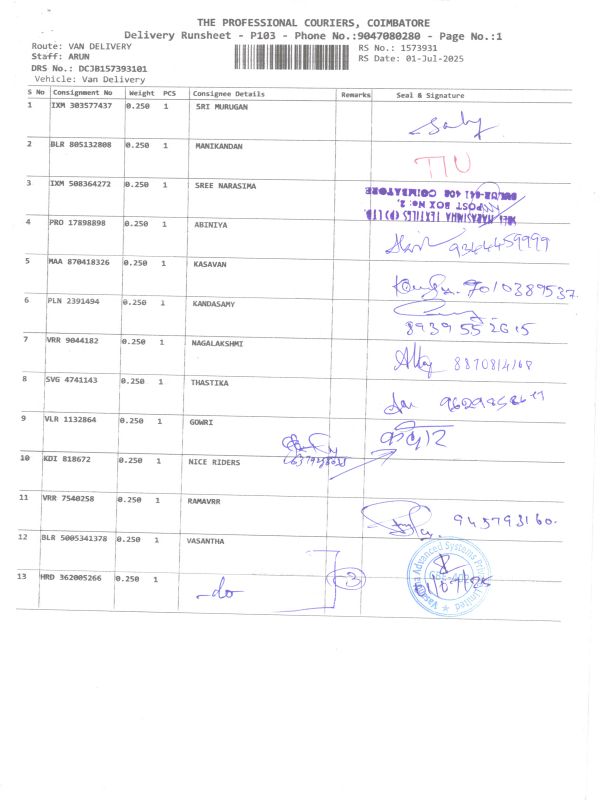 THE PROFESSIONAL COURIERS, COIMBATORE
Delivery Runsheet - P103 - Phone No.:9047080280 - Page No.:1
Route: VAN DELIVERY
RS No.: 1573931
Staff: ARUN
RS Date: 01-Jul-2025
DRS No.: DCJB157393101
Vehicle: Van Delivery
S No Consignment No Weight PCS Consignee Details Remarks Seal & Signature
1 IXM 303577437 0.250 1 SRI MURUGAN
2 BLR 805132808 0.250 1 MANIKANDAN
3 IXM 508364272 0.250 1 SREE NARASIMA
TEXTILES (P) LTD
POST BOX No: 2,
COIMBATORE
4 PRO 17898898 0.250 1 ABINIYA
9344459999
5 MAA 870418326 0.250 1 KASAVAN
7010389537
6 PLN 2391494 0.250 1 KANDASAMY
8939552615
7 VRR 9044182 0.250 1 NAGALAKSHMI
8 SVG 4741143 0.250 1 THASTIKA
9 VLR 1132864 0.250 1 GOWRI
10 KDI 818672 0.250 1 NICE RIDERS
11 VRR 7540258 0.250 1 RAMAVRR
12 BLR 5005341378 0.250 1 VASANTHA
13 HRD 362005266 0.250 1
-do
3
Advanced Systems